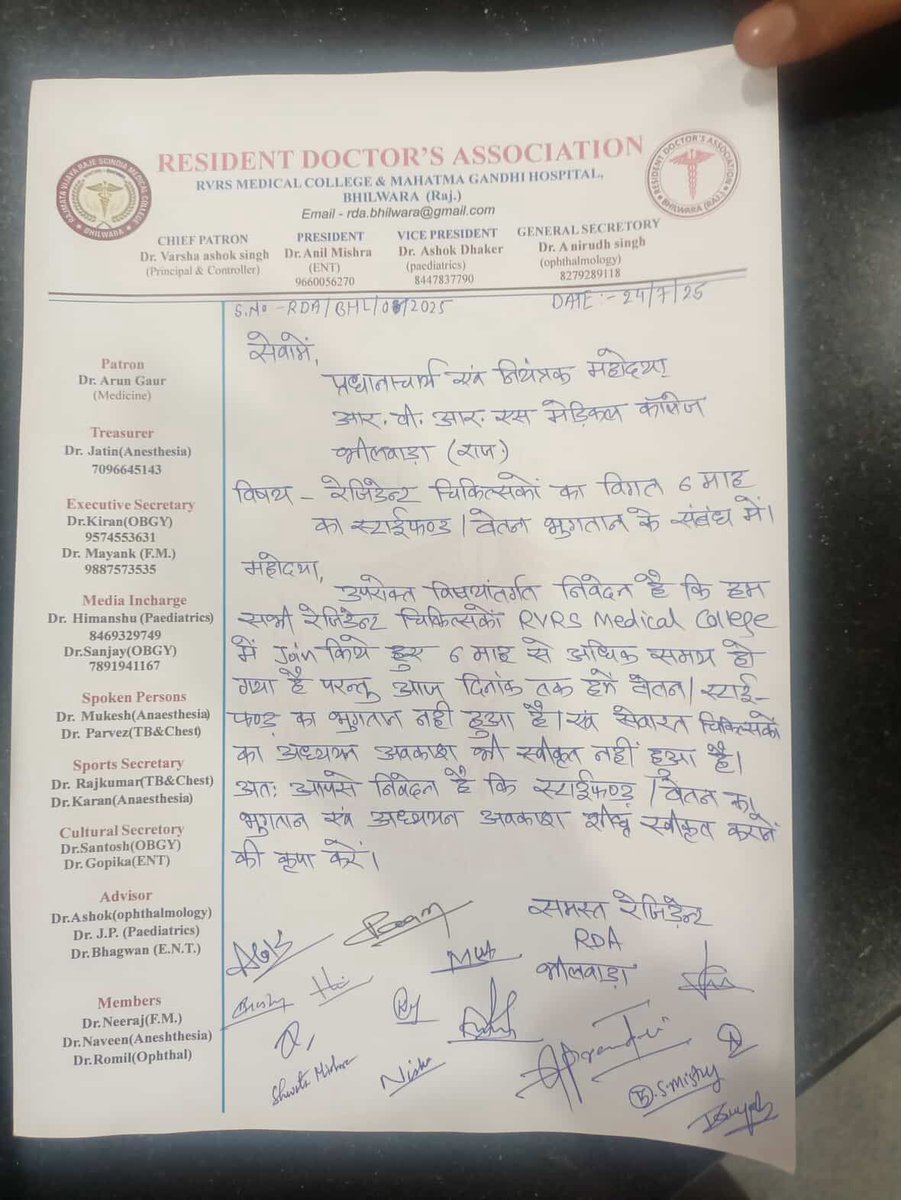 RESIDENT DOCTOR'S ASSOCIATION
RVRS MEDICAL COLLEGE & MAHATMA GANDHI HOSPITAL,
BHILWARA (Raj.)
Email - rda.bhilwara@gmail.com
RAJMATA VIJAYA RAJE SCINDIA MEDICAL COLLEGE
BHILWARA
RESIDENT DOCTOR'S ASSOCIATION
BHILWARA (RAJ.)
CHIEF PATRON
Dr. Varsha ashok singh
(Principal & Controller)
PRESIDENT
Dr. Anil Mishra
(ENT)
9660056270
VICE PRESIDENT
Dr. Ashok Dhaker
(paediatrics)
8447837790
GENERAL SECRETORY
Dr. Anirudh singh
(ophthalmology)
8279289118
S.No - RDA/BHL/ /2025
DATE :- 24/7/25
Patron
Dr. Arun Gaur
(Medicine)
Treasurer
Dr. Jatin(Anesthesia)
7096645143
Executive Secretary
Dr.Kiran(OBGY)
9574553631
Dr. Mayank (F.M.)
9887573535
Media Incharge
Dr. Himanshu (Paediatrics)
8469329749
Dr.Sanjay(OBGY)
7891941167
Spoken Persons
Dr. Mukesh(Anaesthesia)
Dr. Parvez(TB&Chest)
Sports Secretary
Dr. Rajkumar(TB&Chest)
Dr.Karan(Anaesthesia)
Cultural Secretary
Dr.Santosh(OBGY)
Dr. Gopika(ENT)
Advisor
Dr.Ashok(ophthalmology)
Dr. J.P. (Paediatrics)
Dr. Bhagwan (E.N.T.)
Members
Dr.Neeraj(F.M.)
Dr.Naveen(Aneshthesia)
Dr.Romil(Ophthal)
सेवामें,
प्रधानाचार्य एवं नियंत्रक महोदया
आर. वी. आर. एस मेड़िकल कॉलेज
भीलवाड़ा (राज.)
विषय - रेजिडेन्ट चिकित्सकों का विगत 6 माह
का स्टाईफण्ड / वेतन भुगतान के संबंध में।
महोदया,
उपरोक्त विषयांतर्गत निवेदन है कि हम
सभी रेजिडेन्ट चिकित्सकों RVRS Medical College
में Join किये हुए 6 माह से अधिक समय हो
गया है परन्तु आज दिनांक तक हमें वेतन / स्टाई-
फण्ड़ का भुगतान नहीं हुआ है। एवं सेवारत चिकित्सकों
का अध्ययन अवकाश भी स्वीकृत नहीं हुआ है।
अतः आपसे निवेदन है कि स्टाईफण्ड़ / वेतन का
भुगतान एवं अध्ययन अवकाश शीघ्र स्वीकृत कराने
की कृपा करें।
समस्त रेजिडेन्ट
RDA
भीलवाड़ा
Shweta Mishra
Nisha
B.S.Mistry